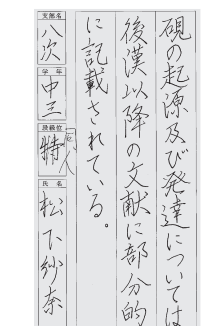 硯の起源及び発達については
後漢以降の文献に部分的
に記載されている。
支部名
八次
学年
中三
段級位
特
人
氏名
松下紗奈